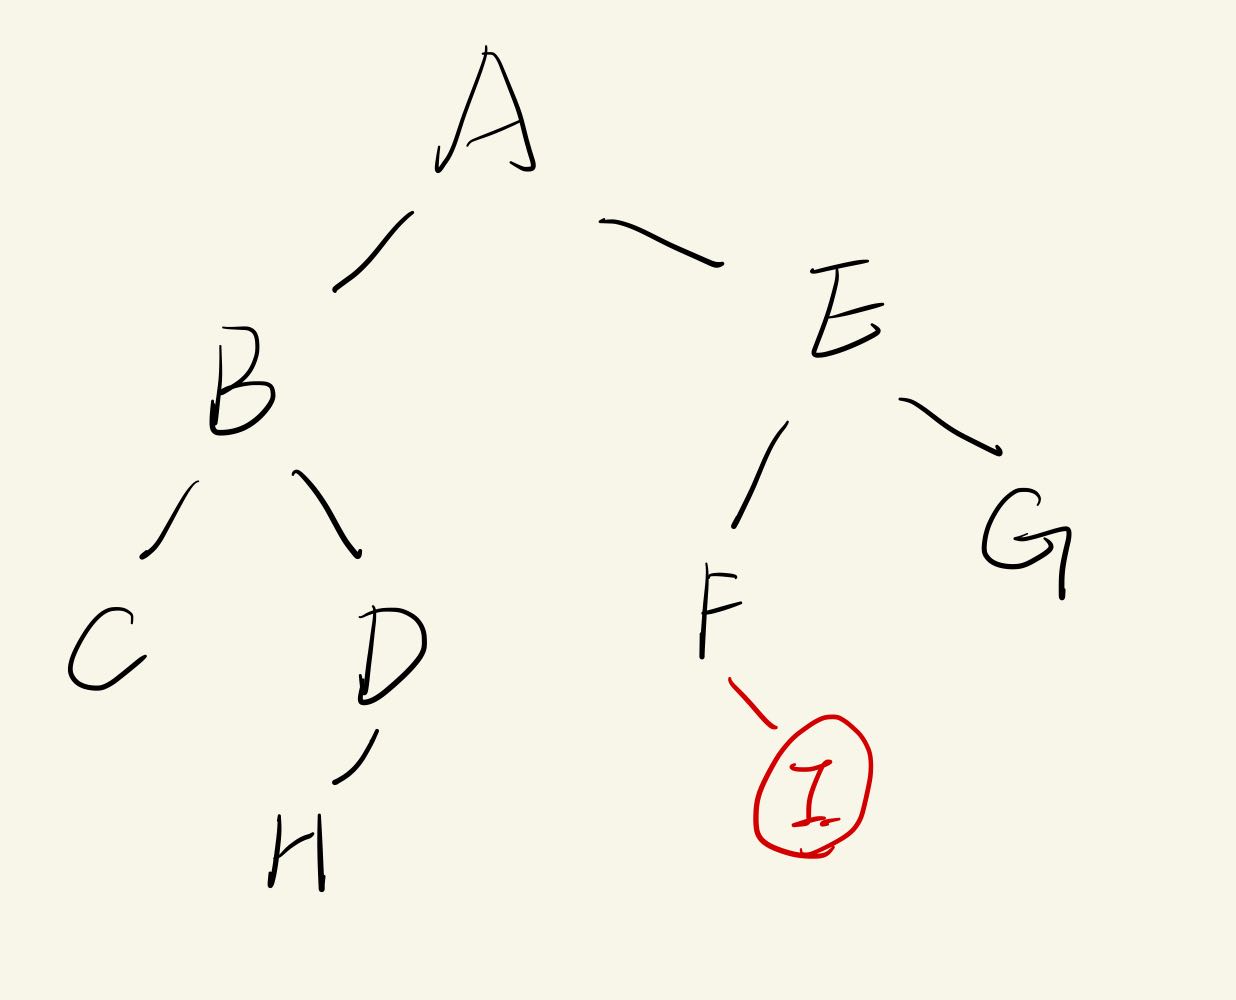 A
B E
C D F G
H I